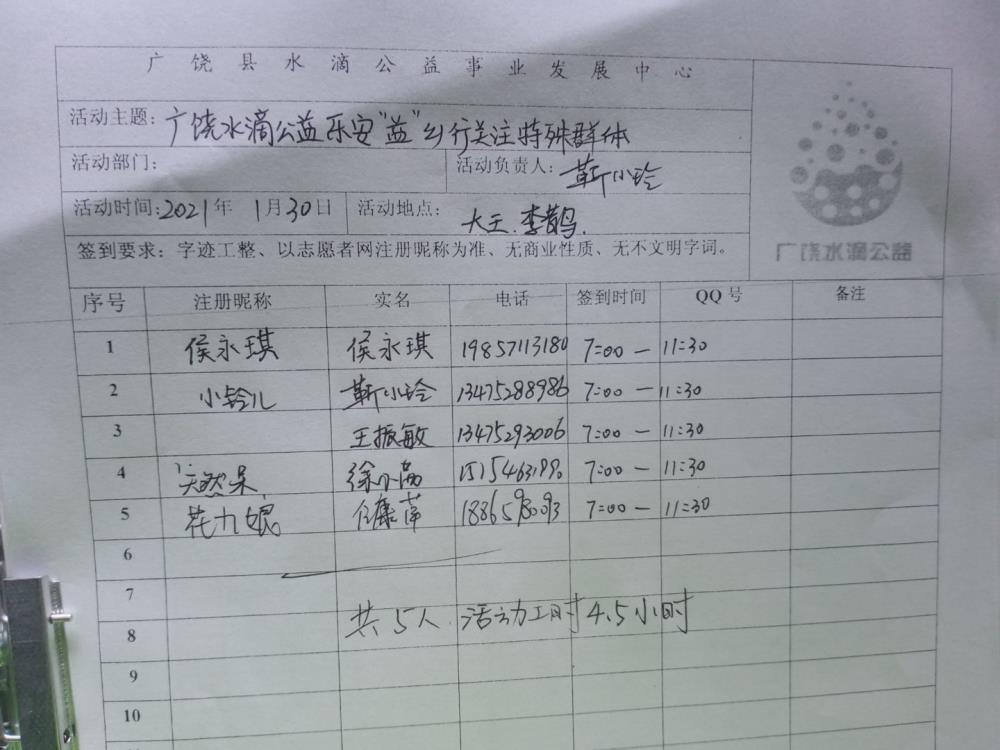 广饶县水滴公益事业发展中心
活动主题：广饶水滴公益乐安“益”乡行关注特殊群体
活动部门： 活动负责人：靳小玲
活动时间：2021年 1月30日 活动地点：大王.李鹊.
签到要求：字迹工整、以志愿者网注册昵称为准、无商业性质、无不文明字词。
广饶水滴公益
序号 注册昵称 实名 电话 签到时间 QQ号 备注
1 侯永琪 侯永琪 19857113180 7:00 — 11:30
2 小铃儿 靳小玲 13475288986 7:00 — 11:30
3 王振敏 13475293006 7:00 — 11:30
4 天然呆 7:00 — 11:30
5 花九娘 任康萍 7:00 — 11:30
6
7
8 共5人 活动工时4.5小时
9
10